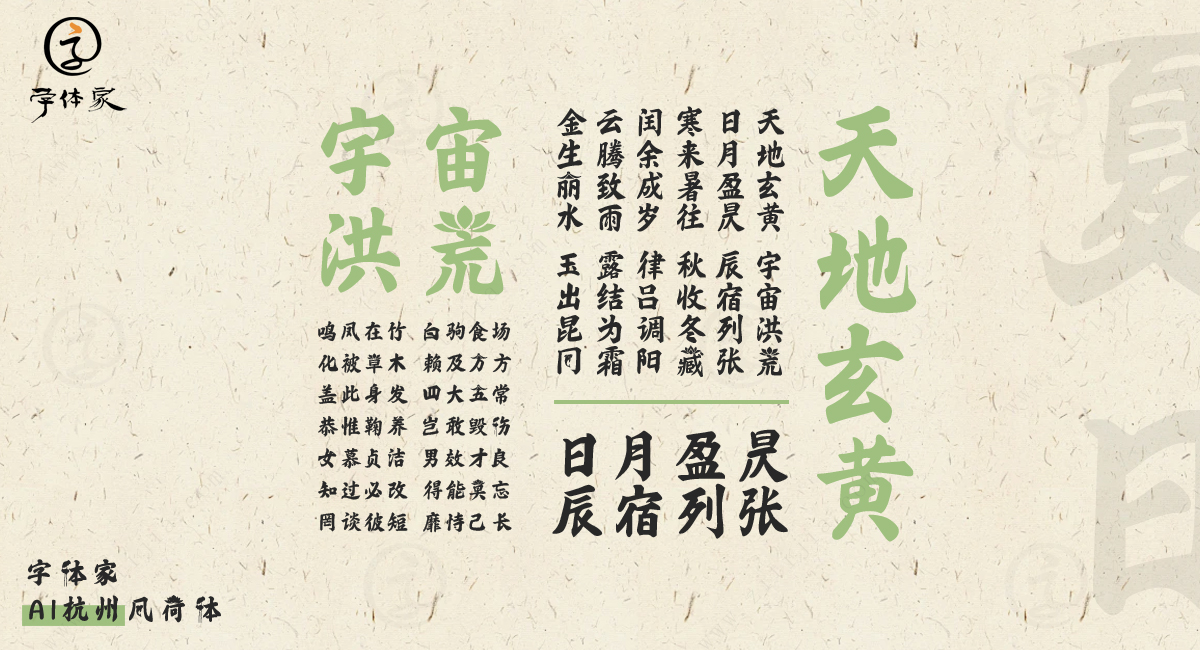 字
字体家
天地玄黄
天地玄黄 宇宙洪荒
日月盈昃 辰宿列张
寒来暑往 秋收冬藏
闰余成岁 律吕调阳
云腾致雨 露结为霜
金生丽水 玉出昆冈
日月盈昃
辰宿列张
宇宙
洪荒
鸣凤在竹 白驹食场
化被草木 赖及万方
盖此身发 四大五常
恭惟鞠养 岂敢毁伤
女慕贞洁 男效才良
知过必改 得能莫忘
罔谈彼短 靡恃己长
夏日
字体家
AI杭州风荷体